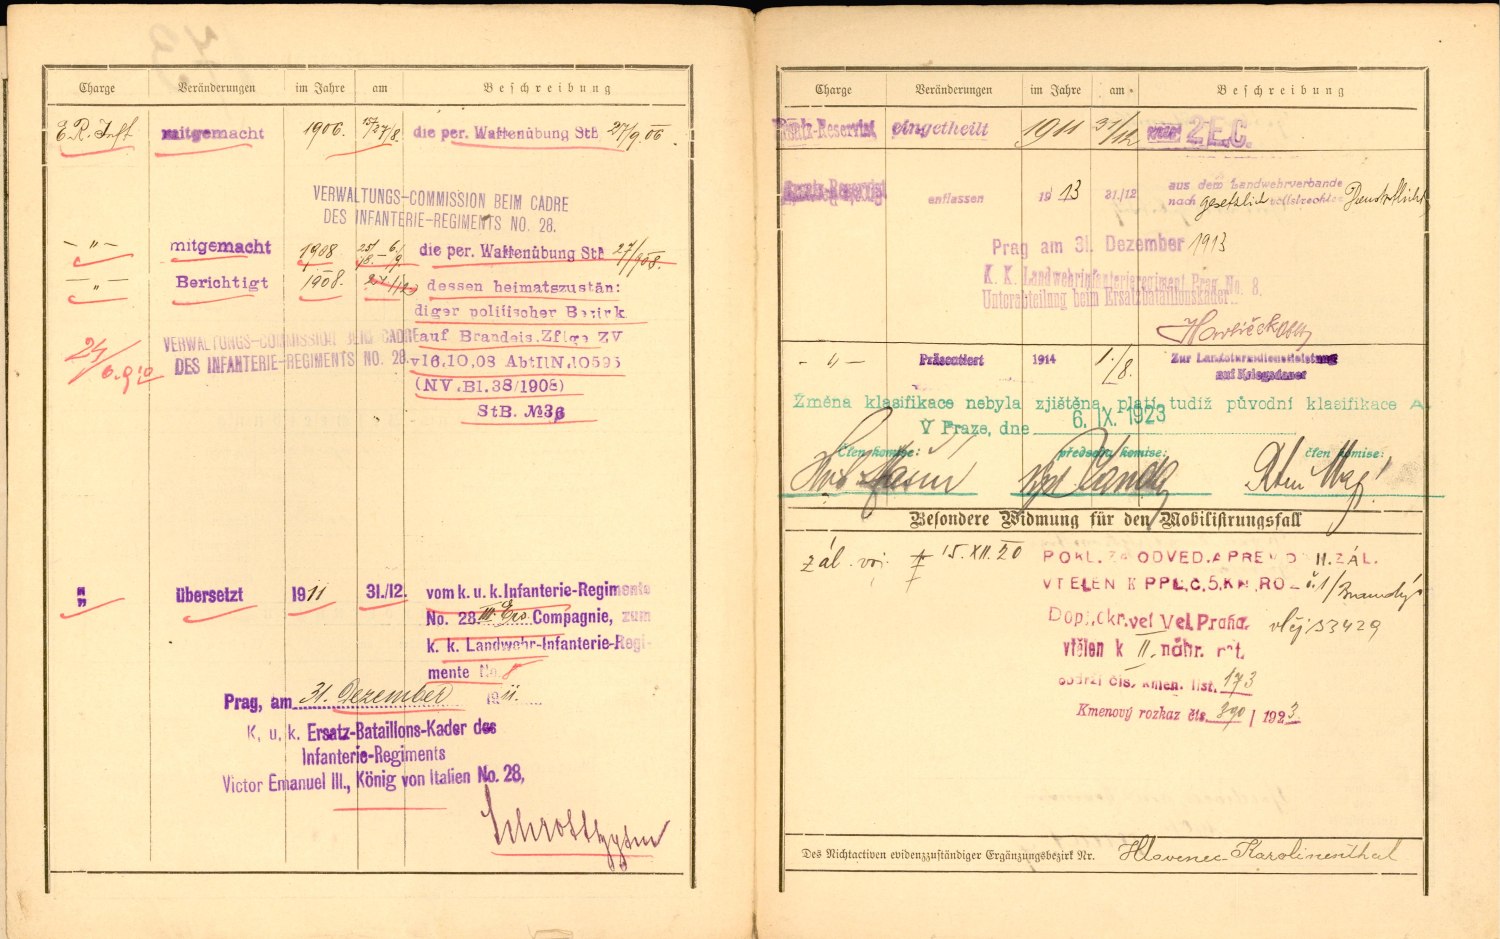 Charge Veränderungen im Jahre am Beschreibung
E.R. Inft mitgemacht 1906. 15/27/8. die per. Waffenübung StB 27/9.06
VERWALTUNGS-COMMISSION BEIM CADRE
DES INFANTERIE-REGIMENTS NO. 28.
— " — mitgemacht 1908 die per. Waffenübung StB 27/908.
— " — Berichtigt 1908. dessen heimatszustän:
diger politischer Bezirk
VERWALTUNGS-COMMISSION BEIM CADRE auf Brandeis. ZV
DES INFANTERIE-REGIMENTS NO. 28. v16.10.08 AbtIIN.10595
(NV.Bl.38/1908)
StB. №
" übersetzt 1911 31./12. vom k. u. k. Infanterie-Regimente
No. 28 III. Compagnie, zum
k. k. Landwehr-Infanterie-Regi-
mente No. 8
Prag, am 31. Dezember 1911.
K. u. k. Ersatz-Bataillons-Kader des
Infanterie-Regiments
Victor Emanuel III., König von Italien No. 28,
Charge Veränderungen im Jahre am Beschreibung
Ersatz-Reservist eingetheilt 1911 31/12 2 E.C.
Ersatz-Reservist entlassen 1913 31./12 aus dem Landwehrverbande
nach gesetzlich vollstreckter Dienstpflicht
Prag am 31. Dezember 1913
K. K. Landwehrinfanterieregiment Prag No. 8.
Unterabteilung beim Ersatzbataillonskader.
— " — Präsentiert 1914 1./8. Zur Landsturmdienstleistung
auf Kriegsdauer
Změna klasifikace nebyla zjištěna, platí tudíž původní klasifikace A.
V Praze, dne 6. IX. 1923
Člen komise: předseda komise: člen komise:
Besondere Widmung für den Mobilisirungsfall
zál. voj. 15.XII.20 POKL. ZA ODVED. A PREV. DO II. ZÁL.
VTĚLEN K P.PL.Č.5, KM. ROZ č. 1/
Dopl. okr. vel. Vel. Praha. 53429
vtělen k II. náhr. rot.
obdrží čís. kmen. list. 173
Kmenový rozkaz čís. 390 / 1923
Des Nichtactiven evidenzzuständiger Ergänzungsbezirk Nr. Hlavenec-Karolinenthal